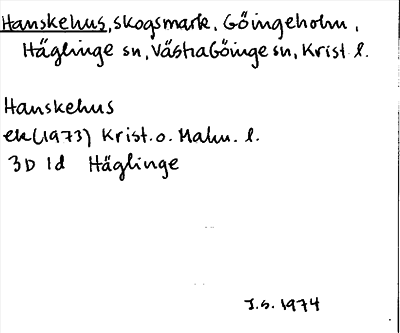 Hanskehus, skogsmark, Göingeholm,
Häglinge sn, Västra Göinge sn, Krist l.
Hanskehus
ek (1973) Krist. o. Malm. l.
3D 1d Häglinge
J.S. 1974